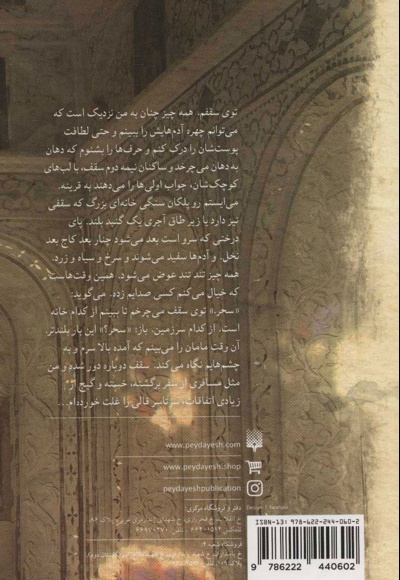 توی سقفم. همه چیز چنان به من نزدیک است که
می‌توانم چهره آدم‌هایش را ببینم و حتی لطافت
پوست‌شان را درک کنم و حرف‌ها را بشنوم که دهان
به دهان می‌چرخد و ساکنان نیمه دوم سقف، با لب‌های
کوچک‌شان، جواب اولی‌ها را می‌دهند به قرینه.
می‌ایستم رو پلکان سنگی خانه‌ای بزرگ که سقفی
تیز دارد یا زیر طاق آجری یک گنبد بلند. پای
درختی که سرو است بعد می‌شود چنار بعد کاج بعد
نخل. و آدم‌ها سفید می‌شوند و سرخ و سیاه و زرد.
همه چیز تند تند عوض می‌شود. همین وقت‌هاست
که خیال می‌کنم کسی صدایم زده. می‌گوید:
«سحر.» توی سقف می‌چرخم تا ببینم از کدام خانه
است. از کدام سرزمین. باز: «سحر؟» این بار بلندتر.
آن وقت مامان را می‌بینم که آمده بالا سرم و به
چشم‌هایم نگاه می‌کند. سقف دوباره دور شده و من
مثل مسافری از سفر برگشته، خسته و گیج از
زیادی اتفاقات، سرتاسر قالی را غلت خورده‌ام...
www.peydayesh.com
www.peydayesh.shop
peydayeshpublication
دفتر و فروشگاه مرکزی:
فروشگاه شعبه ۲:
ISBN-13: 978-622-244-060-2
9 786222 440602